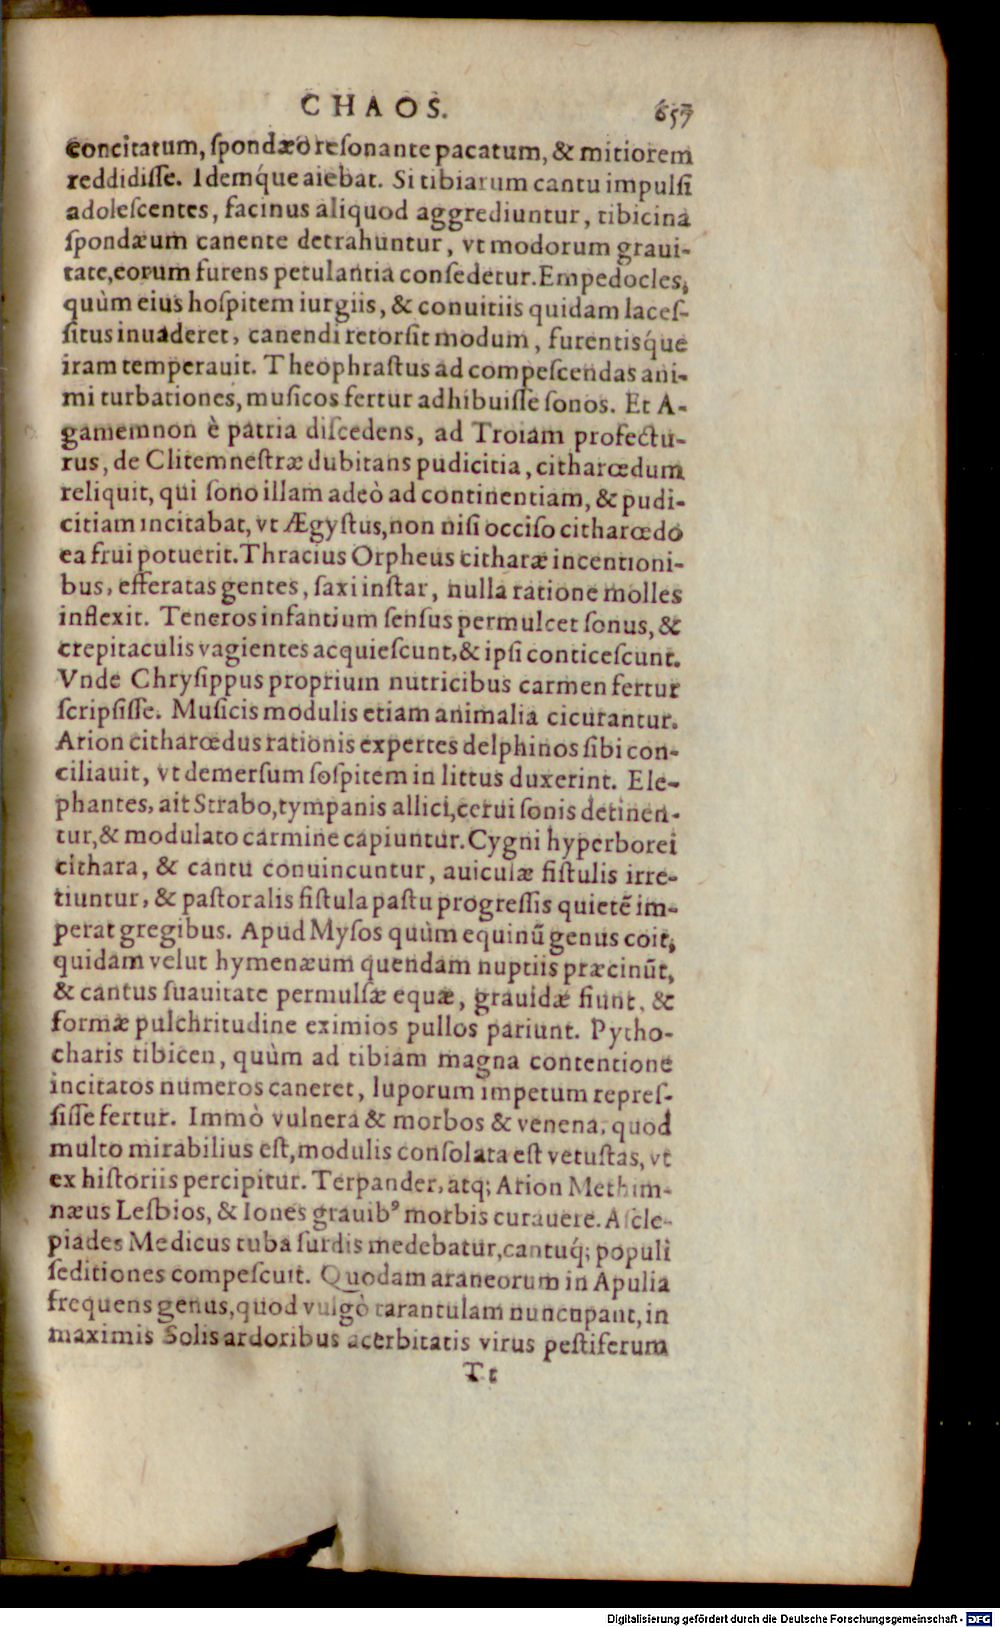 CHAOS. 657
concitatum, spondæo resonante pacatum, & mitiorem
reddidisse. Idemq́ue aiebat. Si tibiarum cantu impulsi
adolescentes, facinus aliquod aggrediuntur, tibicina
spondæum canente detrahuntur, vt modorum graui-
tate, eorum furens petulantia consedetur. Empedocles,
quùm eius hospitem iurgiis, & conuitiis quidam laces-
situs inuaderet, canendi retorsit modum, furentisq́ue
iram temperauit. Theophrastus ad compescendas ani-
mi turbationes, musicos fertur adhibuisse sonos. Et A-
gamemnon è patria discedens, ad Troiam profectu-
rus, de Clitemnestræ dubitans pudicitia, citharœdum
reliquit, qui sono illam adeò ad continentiam, & pudi-
citiam incitabat, vt Ægystus, non nisi occiso citharœdo
ea frui potuerit. Thracius Orpheus citharæ incentioni-
bus, efferatas gentes, saxi instar, nulla ratione molles
inflexit. Teneros infantium sensus permulcet sonus, &
crepitaculis vagientes acquiescunt, & ipsi conticescunt.
Vnde Chrysippus proprium nutricibus carmen fertur
scripsisse. Musicis modulis etiam animalia cicurantur.
Arion citharœdus rationis expertes delphinos sibi con-
ciliauit, vt demersum sospitem in littus duxerint. Ele-
phantes, ait Strabo, tympanis allici, cerui sonis detinen-
tur, & modulato carmine capiuntur. Cygni hyperborei
cithara, & cantu conuincuntur, auiculæ fistulis irre-
tiuntur, & pastoralis fistula pastu progressis quietẽ im-
perat gregibus. Apud Mysos quùm equinũ genus coit,
quidam velut hymenæum quendam nuptiis præcinũt,
& cantus suauitate permulsæ equæ, grauidæ fiunt, &
formæ pulchritudine eximios pullos pariunt. Pytho-
charis tibicen, quùm ad tibiam magna contentione
incitatos numeros caneret, luporum impetum repres-
sisse fertur. Immò vulnera & morbos & venena, quod
multo mirabilius est, modulis consolata est vetustas, vt
ex historiis percipitur. Terpander, atq; Arion Methim-
næus Lesbios, & Iones grauibꝰ morbis curauere. Ascle-
piades Medicus tuba surdis medebatur, cantuq́; populi
seditiones compescuit. Quodam araneorum in Apulia
frequens genus, quod vulgò tarantulam nuncupant, in
maximis Solis ardoribus acerbitatis virus pestiferum
Tt
Digitalisierung gefördert durch die Deutsche Forschungsgemeinschaft - DFG